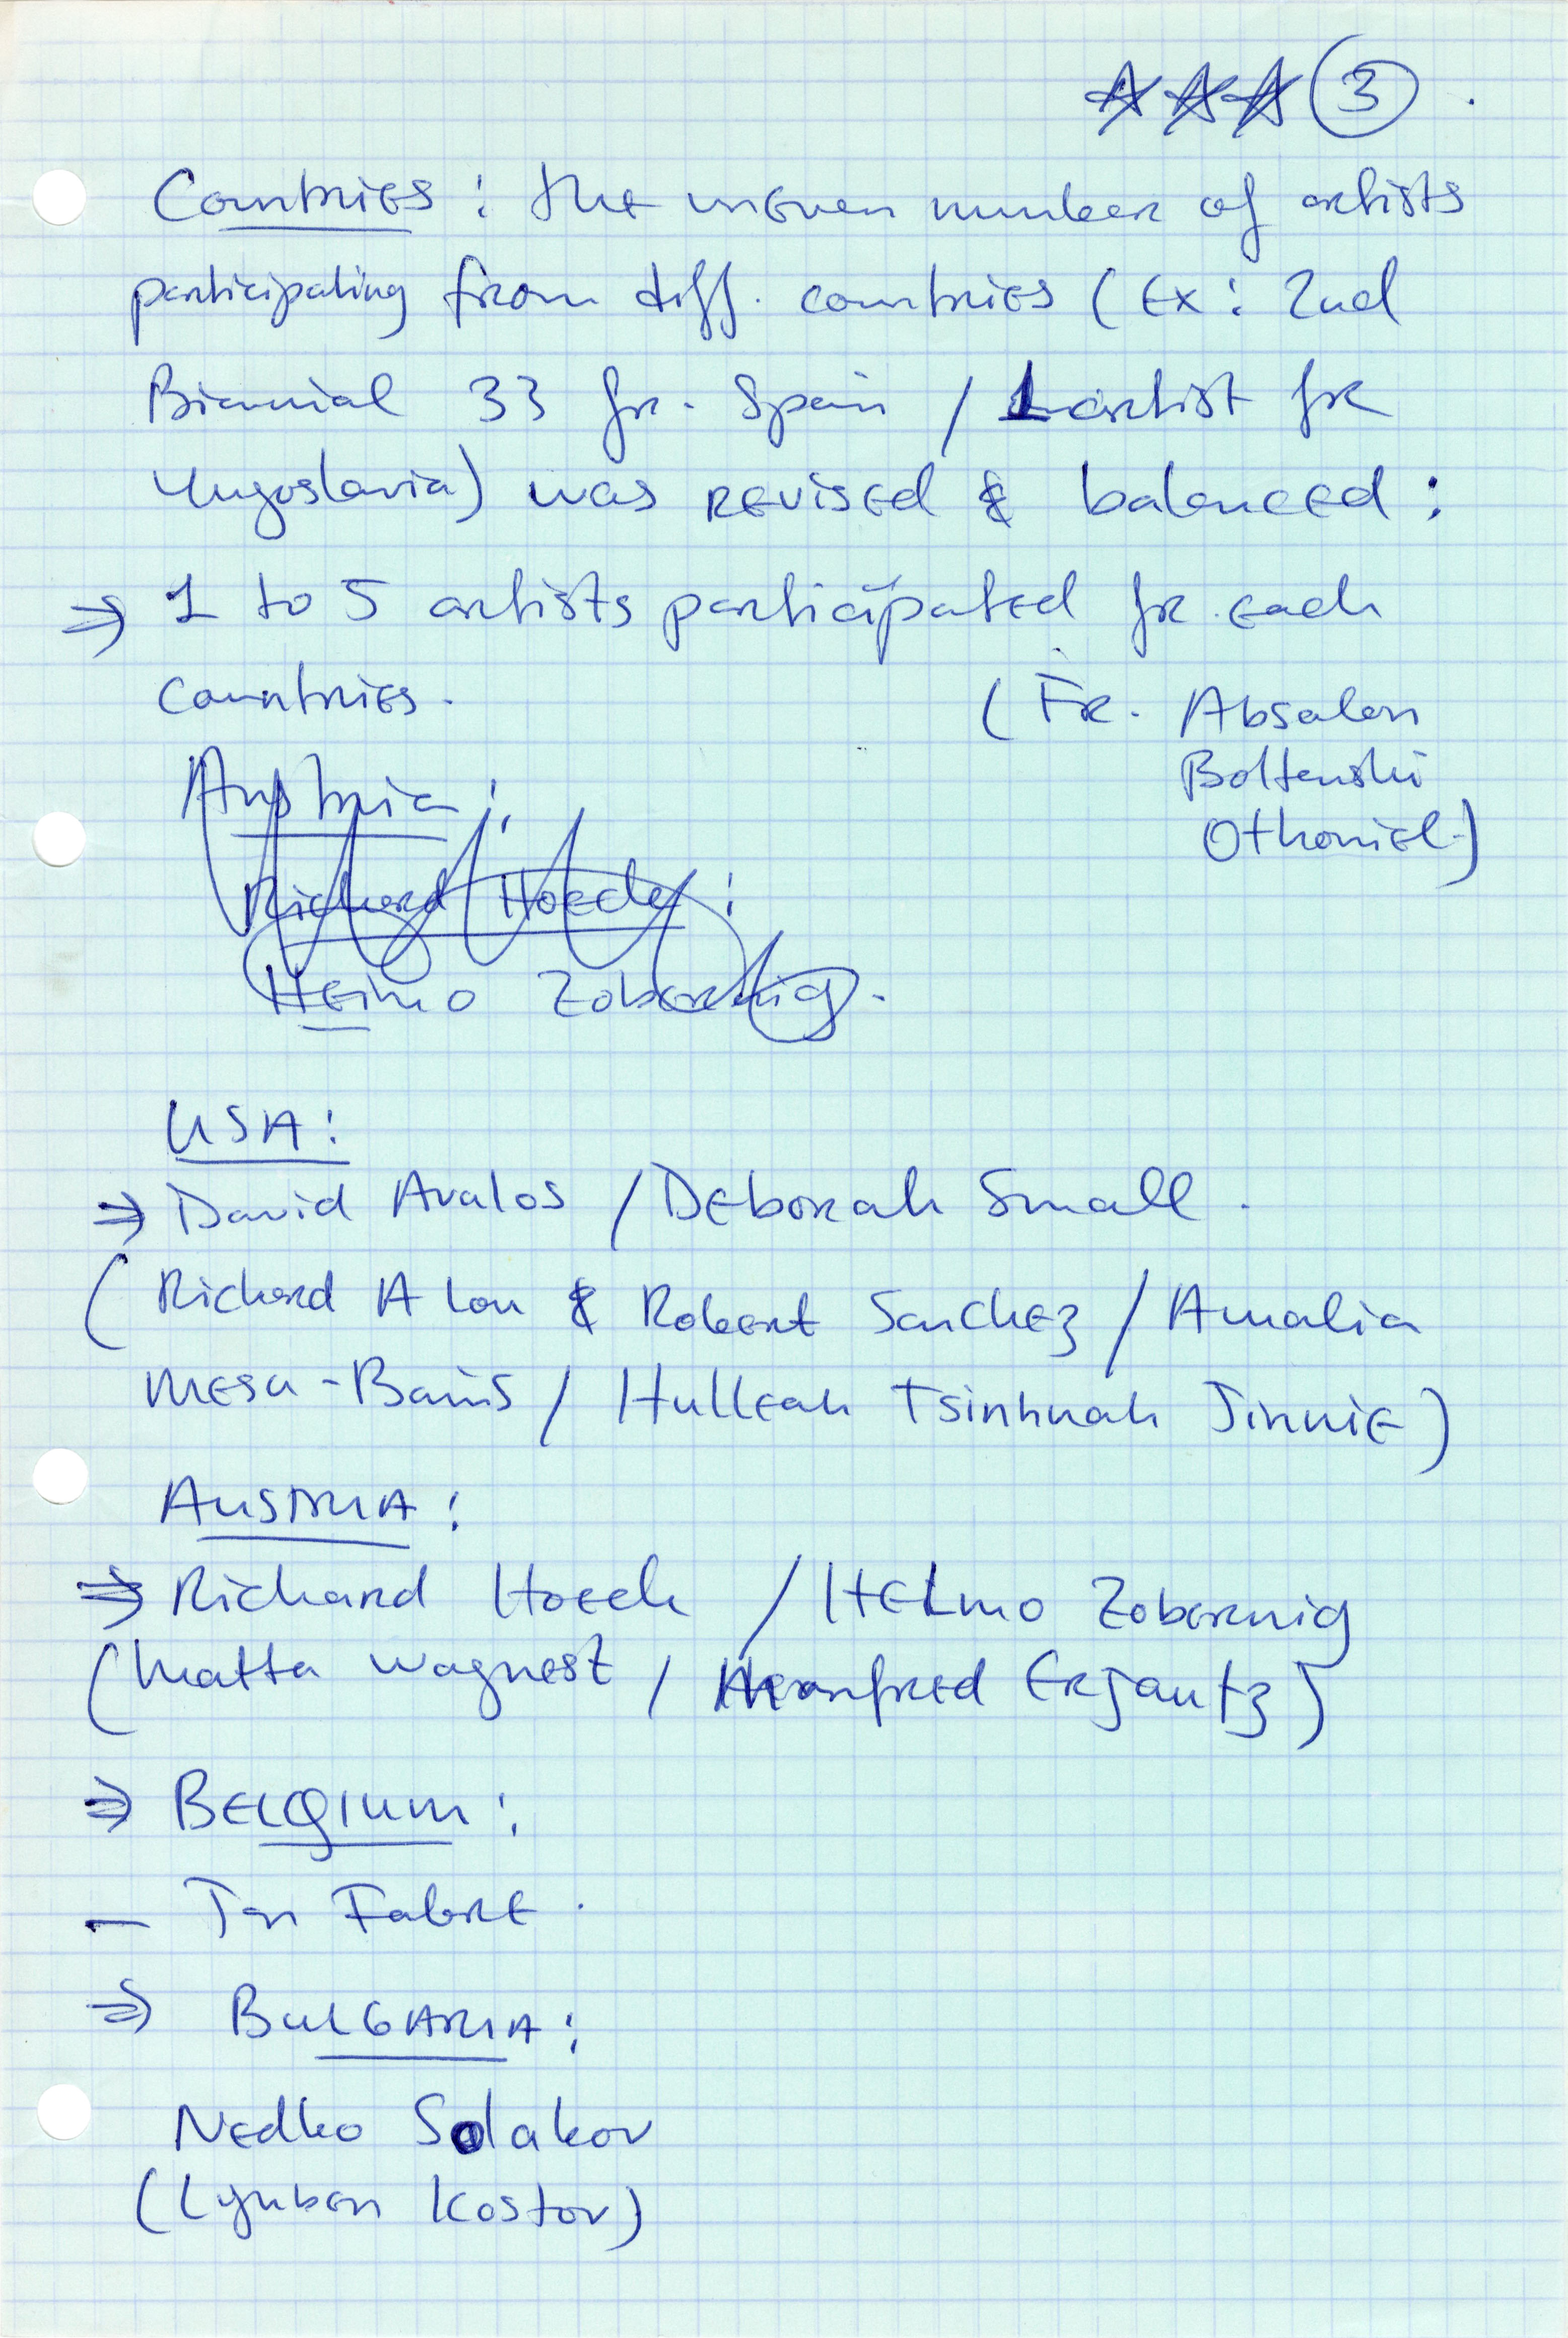 ☆☆☆ 3 .
Countries : the uneven number of artists
participating from diff. countries (Ex : 2nd
Biannial 33 fr. Spain / 1 artist fr
Yugoslavia) was revised & balanced :
⇒ 1 to 5 artists participated fr. each
countries.
(Fr. Absalon
Boltanski
Othoniel)
Austria :
Richard Hoeck :
Heimo Zobernig.
USA :
⇒ David Avalos / Deborah Small .
(Richard A Lou & Robert Sanchez / Amalia
Mesa-Bains / Hulleah Tsinhnah Jinnie)
AUSTRIA :
⇒ Richard Hoeck / HEimo Zobernig
(Matta Wagnest / Manfred Erjautz)
⇒ BELGIUM :
— Jan Fabre .
⇒ BULGARIA :
Nedko Solakov
(Lyuben Kostov)